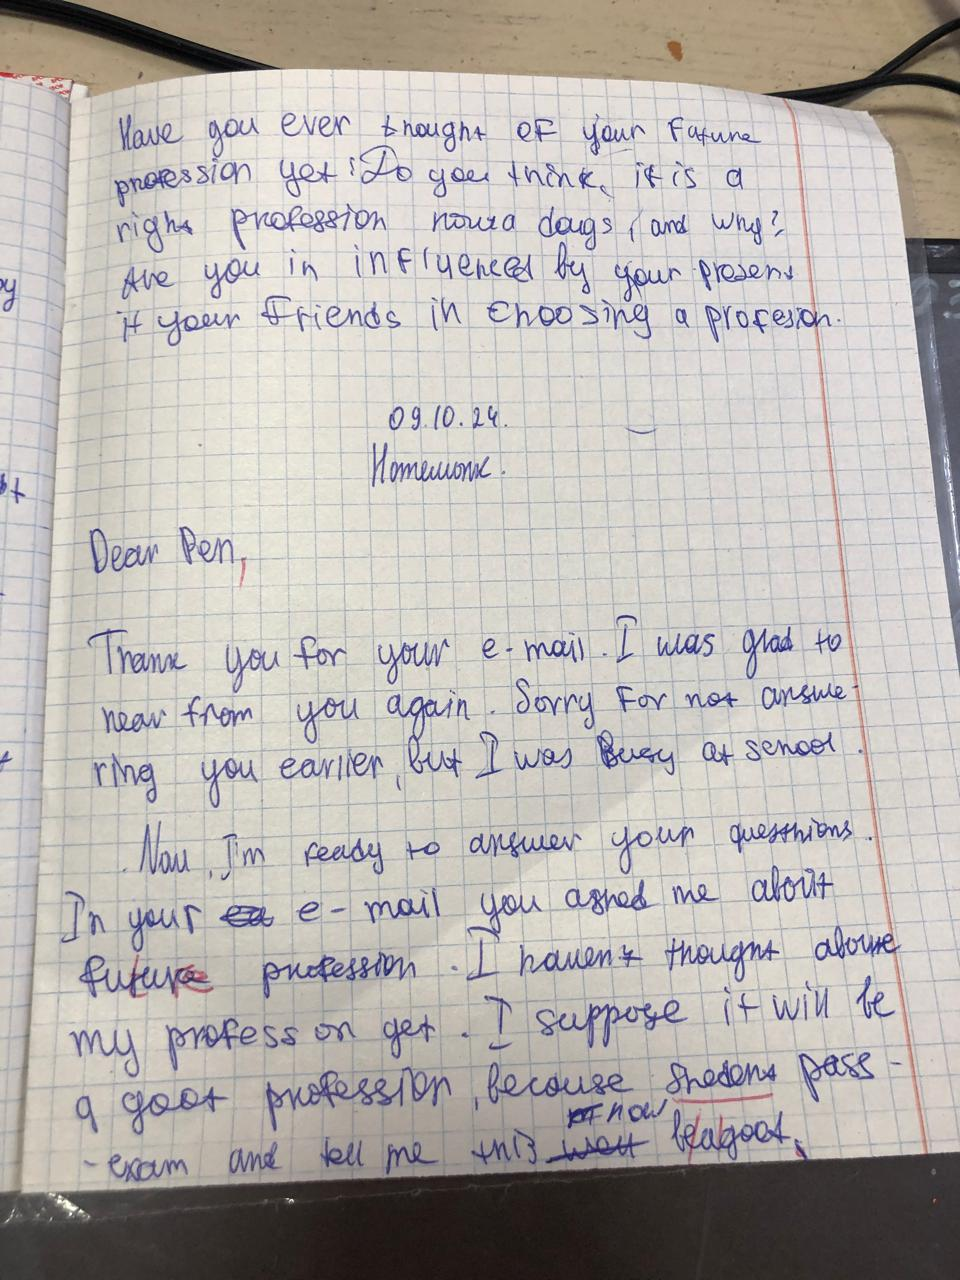 Have you ever thought of your future
profession yet? Do you think, it is a
right profession nowa days, and why?
Are you in influenced by your present
it your friends in choosing a profesion.
09.10.24.
Homework.
Dear Pen,
Thank you for your e-mail. I was glad to
hear from you again. Sorry for not answe-
ring you earlier, but I was busy at school.
Now, I'm ready to answer your questhions.
In your e-mail you asked me about
future profession. I haven't thought aboute
my profess on yet. I suppose it will be
a goot profession, because pass-
-exam and tell me this now be a goot,